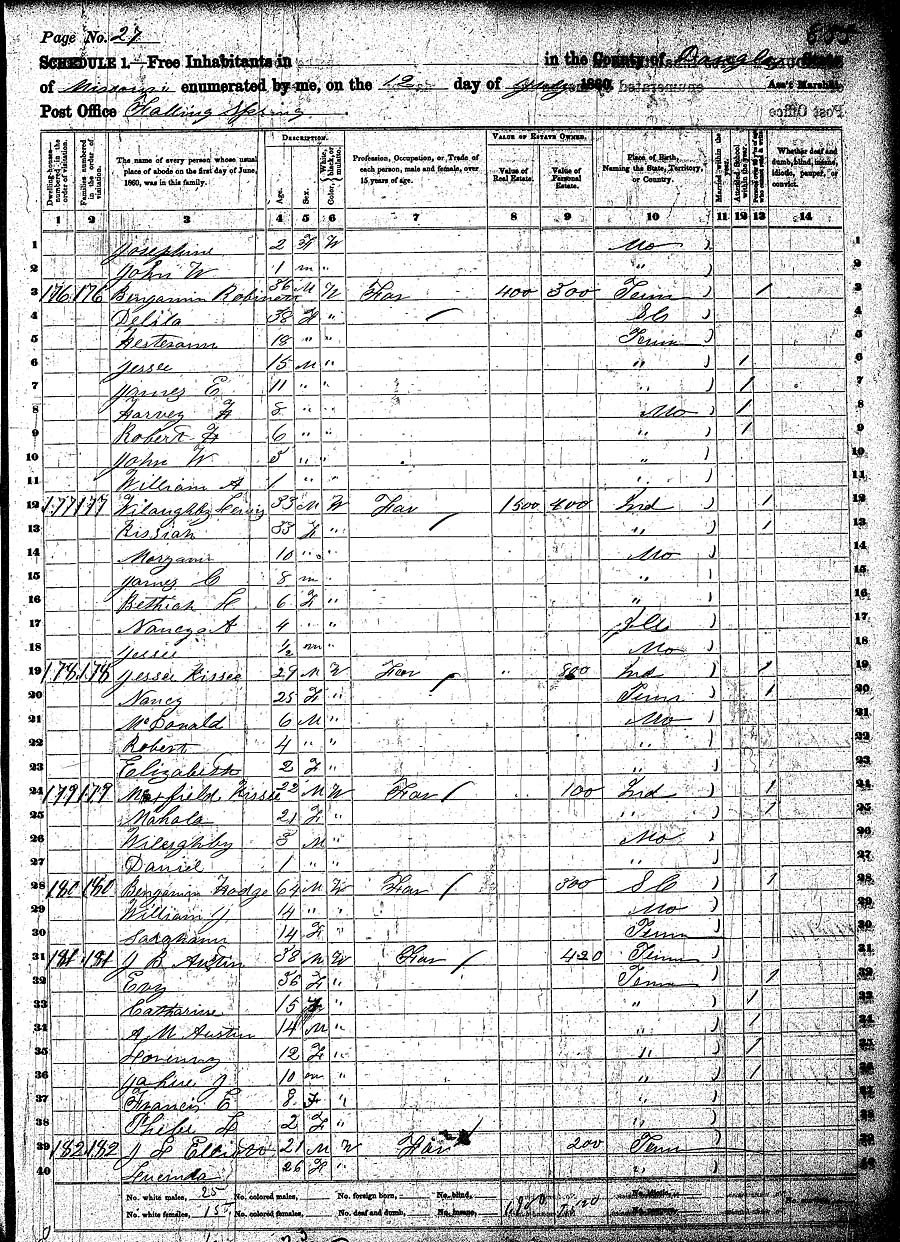 Page No. 27
SCHEDULE 1. Free Inhabitants in in the County of Douglas State
of Missouri enumerated by me, on the 12 day of July 1860. Ass't Marshal.
Post Office Falling Spring
DESCRIPTION. VALUE OF ESTATE OWNED.
Dwelling-houses numbered in the order of visitation.
Families numbered in the order of visitation.
The name of every person whose usual place of abode on the first day of June, 1860, was in this family.
Age.
Sex.
Color, White, black, or mulatto.
Profession, Occupation, or Trade of each person, male and female, over 15 years of age.
Value of Real Estate.
Value of Personal Estate.
Place of Birth, Naming the State, Territory, or Country.
Married within the year.
Attended School within the year.
Whether deaf and dumb, blind, insane, idiotic, pauper, or convict.
1 2 3 4 5 6 7 8 9 10 11 12 13 14
1 Josephine 2 F W Mo 1
2 John W 1 m " " 2
3 176 176 Benjamin Robinson 36 M W Far 400 300 Tenn 1 3
4 Delila 38 F " S C 4
5 Hesterann 18 " " Tenn 5
6 Jessee 15 M " " 1 6
7 James E 11 " " " 1 7
8 Harvey F 8 " " Mo 1 8
9 Robert F 6 " " " 1 9
10 John W 5 " " " 10
11 William A 1 " " " 11
12 177 177 Wiloughby Lewis 33 M W Far 1500 400 Ind 1 12
13 Kissiah 33 F " " 1 13
14 10 " " Mo 14
15 James C 8 m " " 15
16 Bethiah L 6 F " " 16
17 Nancy A 4 " " Ill 17
18 Jessee 1/2 m " Mo 18
19 178 178 Jessee Kissee 29 M W Far " 800 Ind 1 19
20 Nancy 25 F " Tenn 1 20
21 McDonald 6 M " Mo 21
22 Robert 4 " " " 22
23 Elizabeth 2 F " " 23
24 179 179 Kissee 22 M W Far 100 Ind 1 24
25 Mahala 21 F " " 1 25
26 Wileughby 3 M " Mo 26
27 Daniel 1 " " " 27
28 180 180 Benjamin Hodge 64 M W Far 300 S C 1 28
29 William J 14 " " Mo 29
30 14 F " Tenn 30
31 181 181 J B Austin 38 M W Far 420 Tenn 31
32 36 F " Tenn 1 32
33 Catharine 15 F " " 1 33
34 A M Austin 14 M " " 1 34
35 12 F " " 1 35
36 10 m " " 1 36
37 Francis E 8 F " " 37
38 Phebe L 2 F " " 38
39 182 182 J L 21 M W Far 200 Tenn 39
40 Lucinda 26 F " " 40
No. white males, 25 No. colored males, No. foreign born, No. blind,
No. white females, 15 No. colored females, No. deaf and dumb, No. insane,